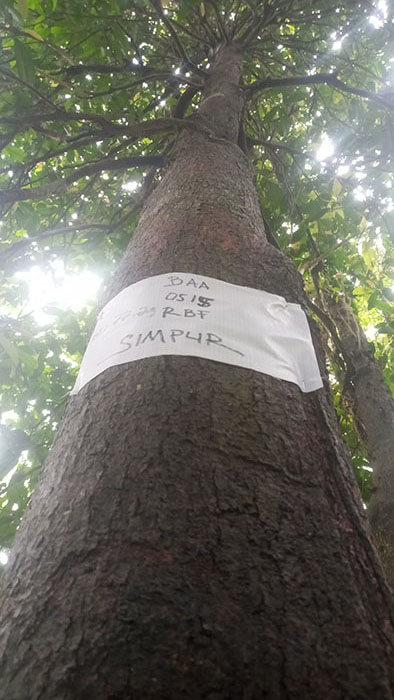 BAA
0515
RBF
SIMPUR